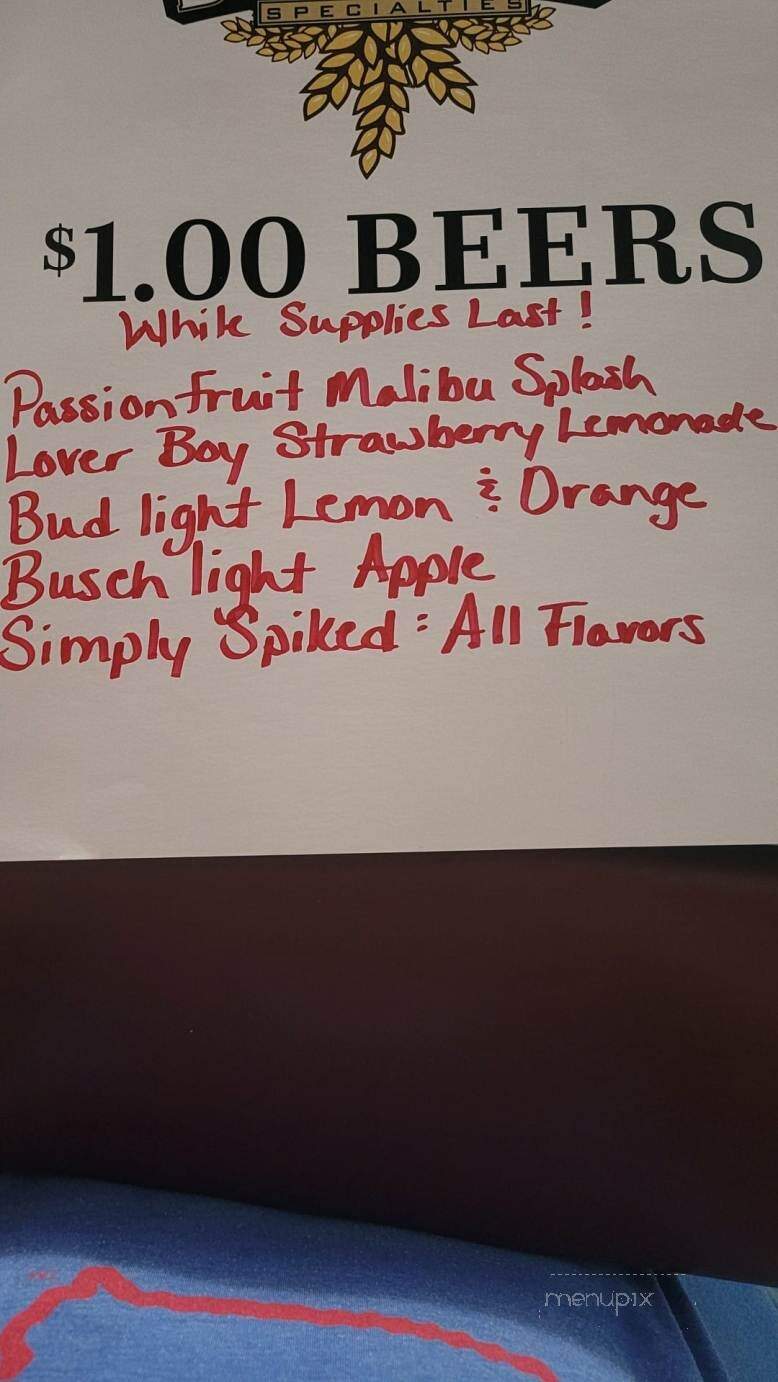 SPECIALTIES
$1.00 BEERS
While Supplies Last!
Passionfruit Malibu Splash
Lover Boy Strawberry Lemonade
Bud light Lemon & Orange
Busch light Apple
Simply Spiked: All Flavors
menupix